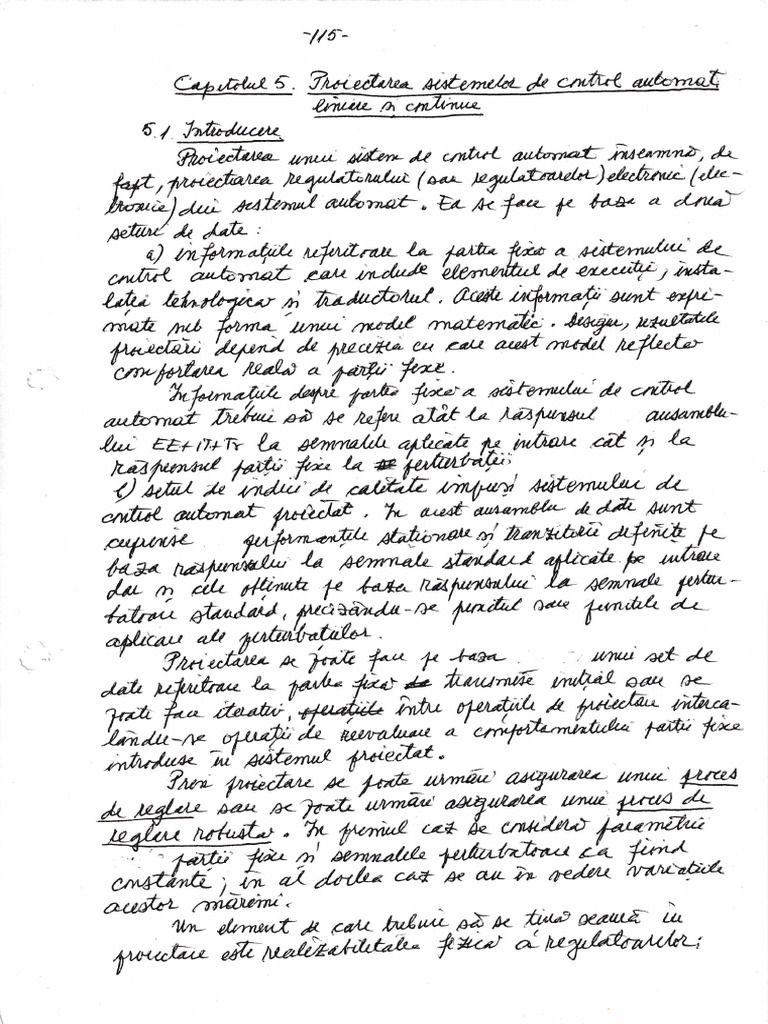 -115-
Capitolul 5. Proiectarea sistemelor de control automat
liniare și continue
5.1. Introducere
Proiectarea unui sistem de control automat înseamnă, de
fapt, proiectarea regulatorului (sau regulatoarelor) electronic (elec-
tronice) din sistemul automat. Ea se face pe baza a două
seturi de date:
a) informațiile referitoare la partea fixă a sistemului de
control automat care include elementul de execuție, insta-
lația tehnologică și traductorul. Aceste informații sunt expri-
mate sub forma unui model matematic. Desigur, rezultatele
proiectării depind de precizia cu care acest model reflectă
comportarea reală a părții fixe.
Informațiile despre partea fixă a sistemului de control
automat trebuie să se refere atât la răspunsul ansamblu-
lui EE+IT+Tr la semnalele aplicate pe intrare cât și la
răspunsul părții fixe la perturbații;
b) setul de indici de calitate impuși sistemului de
control automat proiectat. In acest ansamblu de date sunt
cuprinse performanțele staționare și tranzitorii definite pe
baza răspunsului la semnale standard aplicate pe intrare
dar și cele obținute pe baza răspunsului la semnale pertur-
batoare standard, precizându-se punctul sau punctele de
aplicare ale perturbațiilor.
Proiectarea se poate face pe baza unui set de
date referitoare la partea fixă transmise inițial sau se
poate face iterativ, operațiile între operațiile de proiectare interca-
lându-se operații de reevaluare a comportamentului părții fixe
introduse în sistemul proiectat.
Prin proiectare se poate urmări asigurarea unui proces
de reglare sau se poate urmări asigurarea unui proces de
reglare robustă. In primul caz se consideră parametrii
părții fixe și semnalele perturbatoare ca fiind
constante; în al doilea caz se au în vedere variațiile
acestor mărimi.
Un element de care trebuie să se țină seama în
proiectare este realizabilitatea fizică a regulatoarelor;